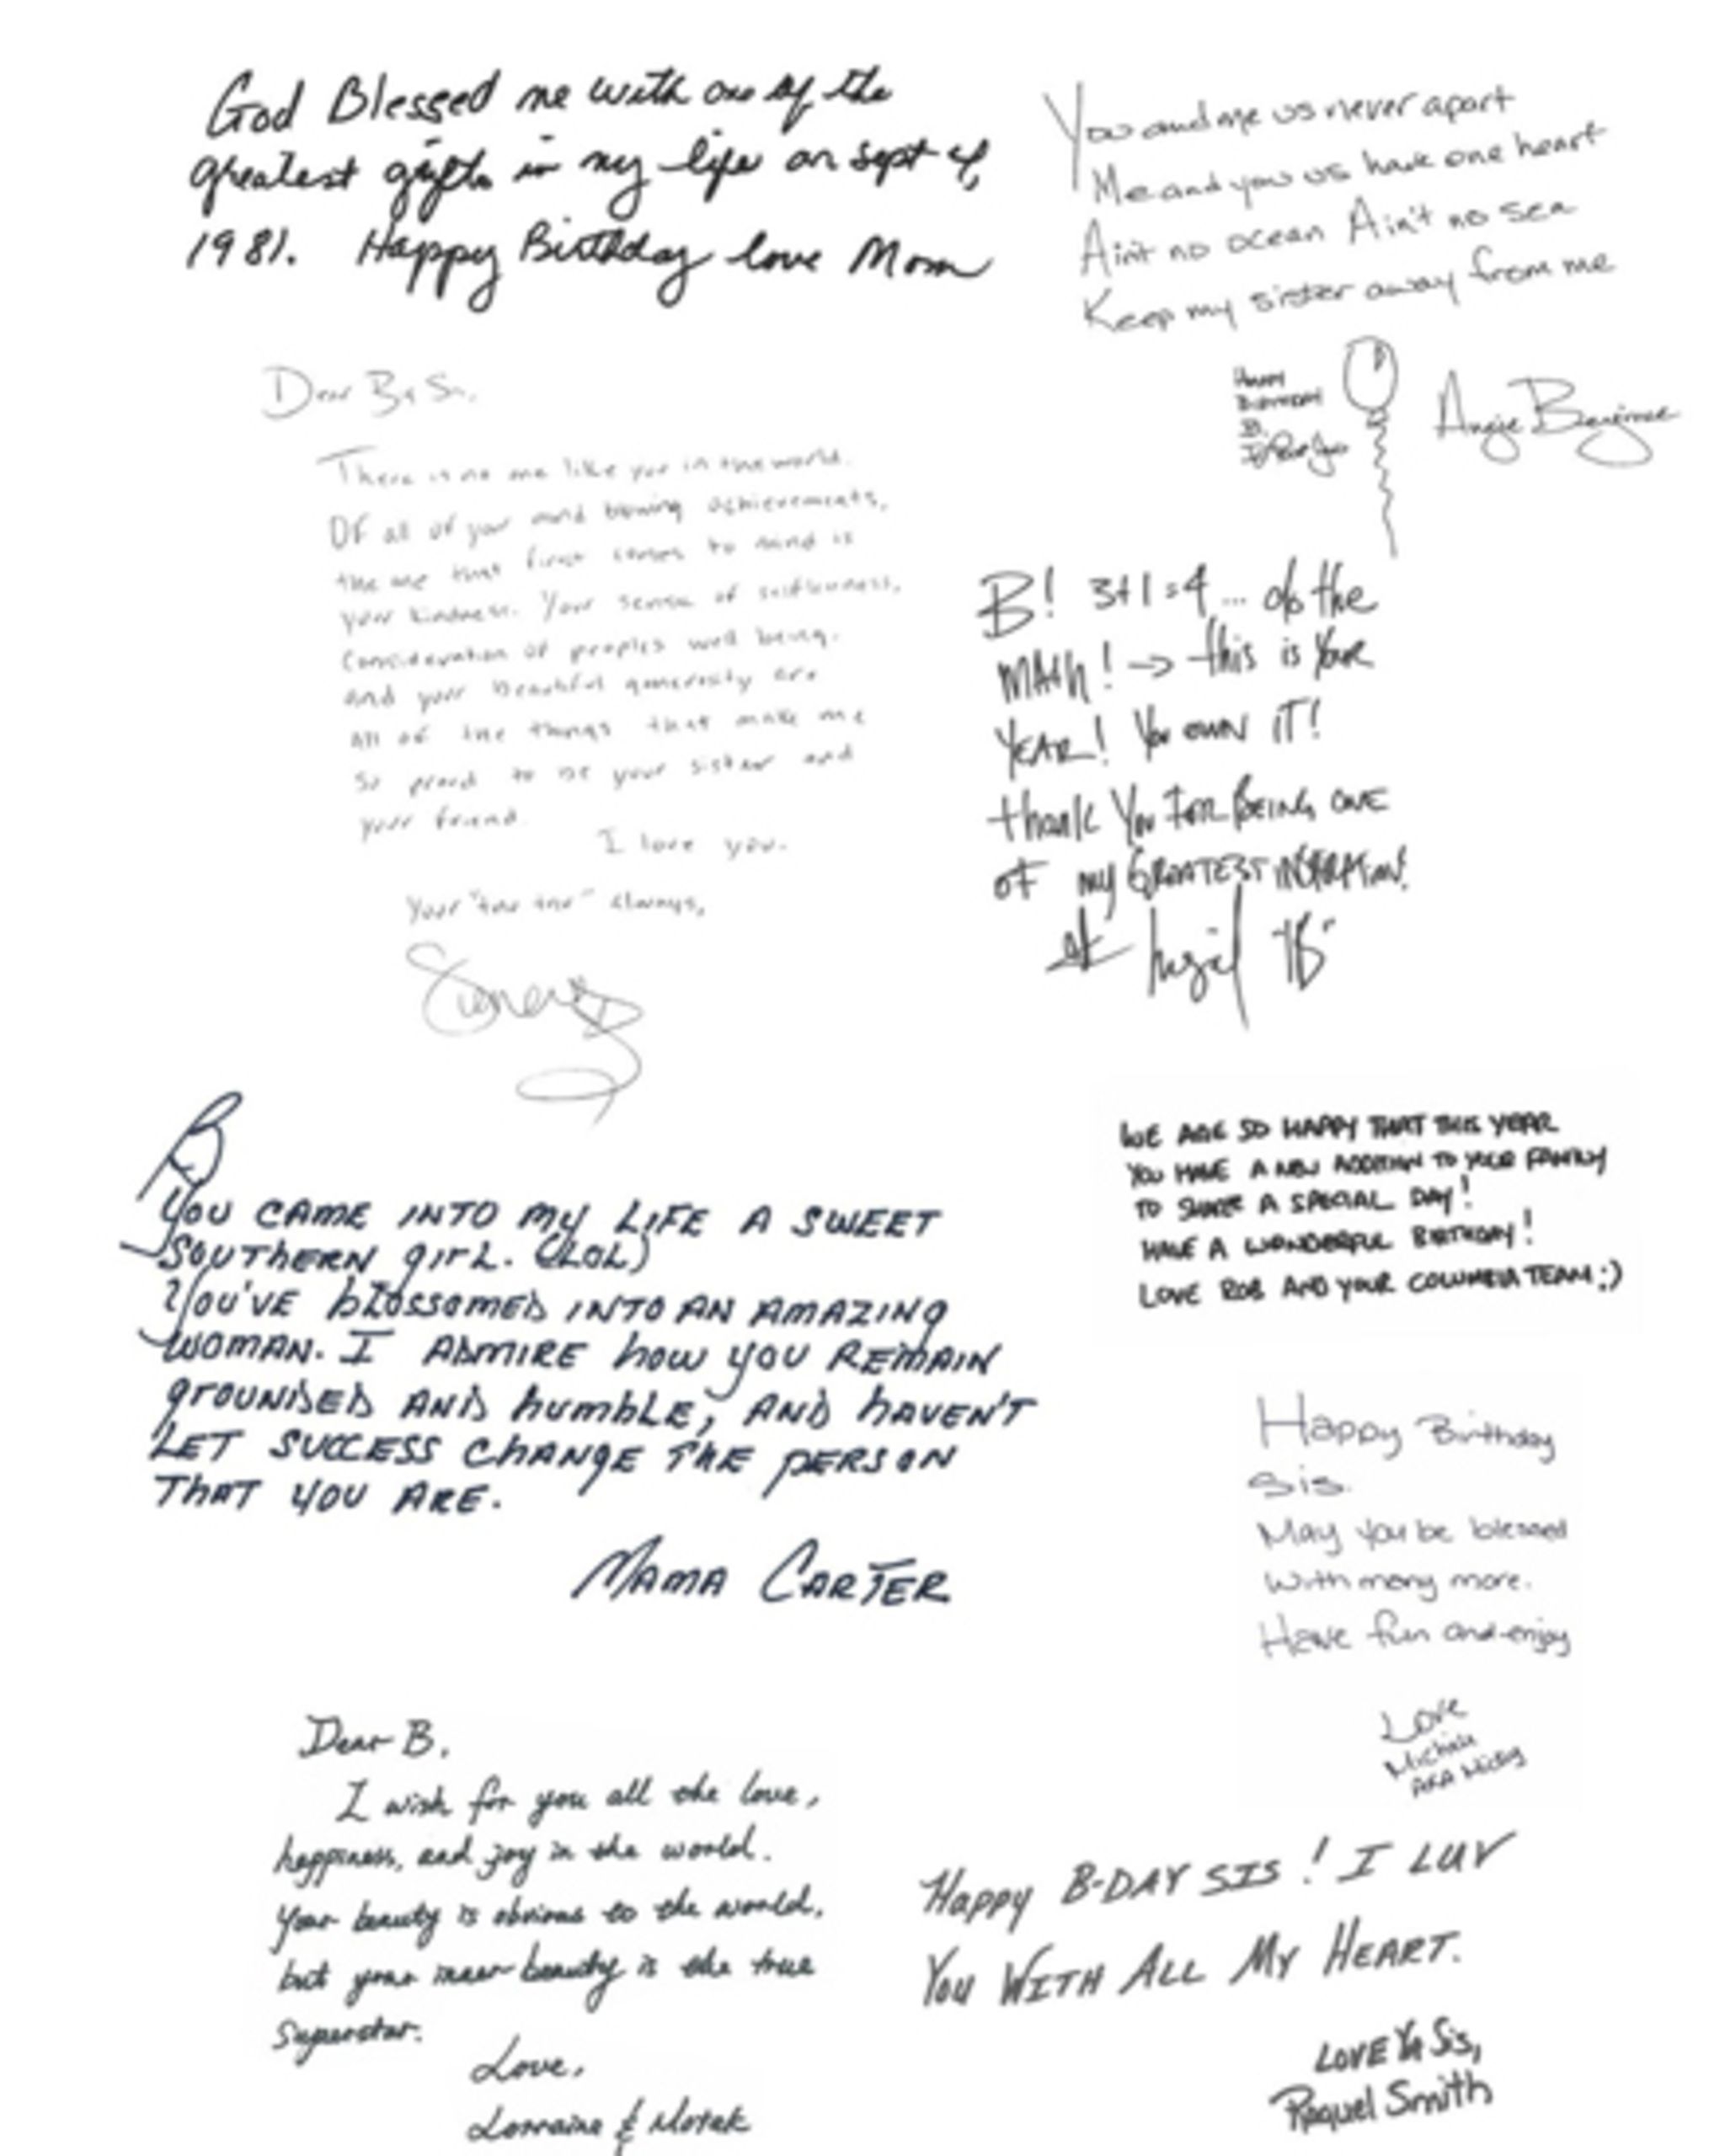 God Blessed me with one of the
greatest gifts in my life on sept 4,
1981. Happy Birthday love Mom
You and me us never apart
Me and you us have one heart
Ain't no ocean Ain't no sea
Keep my sister away from me
Happy
Birthday
B.
Angie Beyince
Dear
There is no one like you in the world.
Of all of your mind blowing achievements,
the one that first comes to mind is
your kindness. Your sense of selflessness,
Consideration of peoples well being.
and your beautiful generosity are
all of the things that make me
so proud to be your sister and
your friend.
I love you.
Your always,
B! 3+1=4... do the
MATH! → this is your
YEAR! You own IT!
thank You FOR BEING ONE
OF my GREATEST INSPIRATION!
B
You CAME INTO my LIFE A SWEET
SOUTHERN girL. (LOL)
You'VE bLOSSOMED INTO AN AMAZING
WOMAN. I ADMIRE how you REMAIN
grOUNDED AND humbLE, AND hAVEN'T
LET SUCCESS ChANgE THE PERSON
THAT YOU ARE.
MAMA CARTER
WE ARE SO HAPPY THAT THIS YEAR
YOU HAVE A NEW ADDITION TO YOUR FAMILY
TO SHARE A SPECIAL DAY!
HAVE A WONDERFUL BIRTHDAY!
LOVE ROB AND YOUR COLUMBIA TEAM :)
Happy Birthday
Sis.
May you be blessed
With many more.
Have fun and enjoy
Love
AKA
Dear B.
I wish for you all the love,
happiness, and joy in the world.
Your beauty is obvious to the world,
but your inner beauty is the true
Superstar.
Love,
Lorraine &
Happy B-DAY SIS! I LUV
YOU WITH ALL MY HEART.
LOVE YA SIS,
Raquel Smith